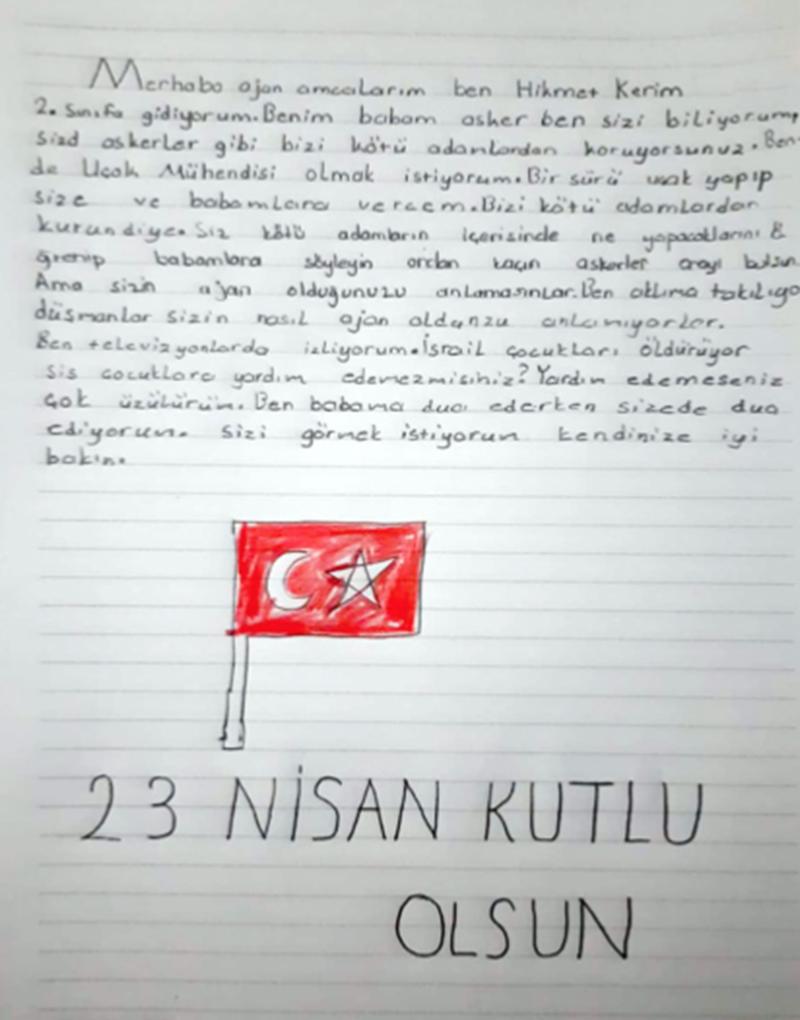 Merhaba ajan amcalarım ben Hikmet Kerim
2. Sınıfa gidiyorum. Benim babam asker ben sizi biliyorum,
sizd askerler gibi bizi kötü adamlardan koruyorsunuz. Ben
de Uçak Mühendisi olmak istiyorum. Bir sürü uçak yapıp
size ve babamlara vercem. Bizi kötü adamlardan
kurun diye. Siz kötü adamların içerisinde ne yapacaklarını ö
ğrenip babamlara söyleyin ordan kaçın askerler orayı bulsun
Ama sizin ajan olduğunuzu anlamasınlar. Ben aklıma takılıyo
düşmanlar sizin nasıl ajan oldunzu anlamıyorlar.
Ben televizyonlarda izliyorum. İsrail çocukları öldürüyor
sis çocuklara yardım edemezmisiniz? Yardım edemeseniz
çok üzülürüm. Ben babama dua ederken sizede dua
ediyorum. sizi görmek istiyorum kendinize iyi
bakın.
23 NİSAN KUTLU
OLSUN